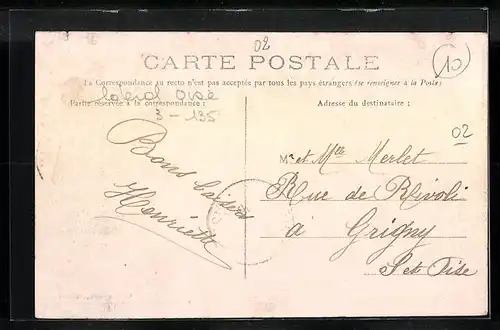 02
10
CARTE POSTALE
La Correspondance au recto n'est pas acceptée par tous les pays étrangers (se renseigner à la Poste)
Oise
Partie réservée à la correspondance :
Adresse du destinataire :
3-135
02
Bons baisers
Henriette
M. et Mlle Merlet
Rue de Rivoli
à Grigny
S et Oise